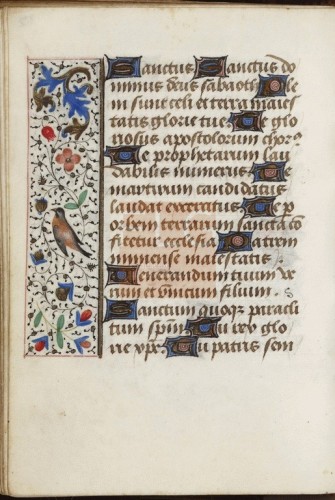 Sanctus Sanctus do
minus deus sabaoth Ple
ni sunt celi et terra maies
tatis glorie tue Te glo
riosus apostolorum chorꝰ
Te prophetarum lau
dabilis numerus Te
martirum candidatus
laudat exercitus Te p
orbem terrarum sancta cō
fitetur ecclesia Patrem
immense maiestatis
Venerandum tuum ve
rum et vnicum filium. S
Sanctum quoqꝫ paracli
tum spm̄ Tu rex glo
rie xp̄e Tu patris sem